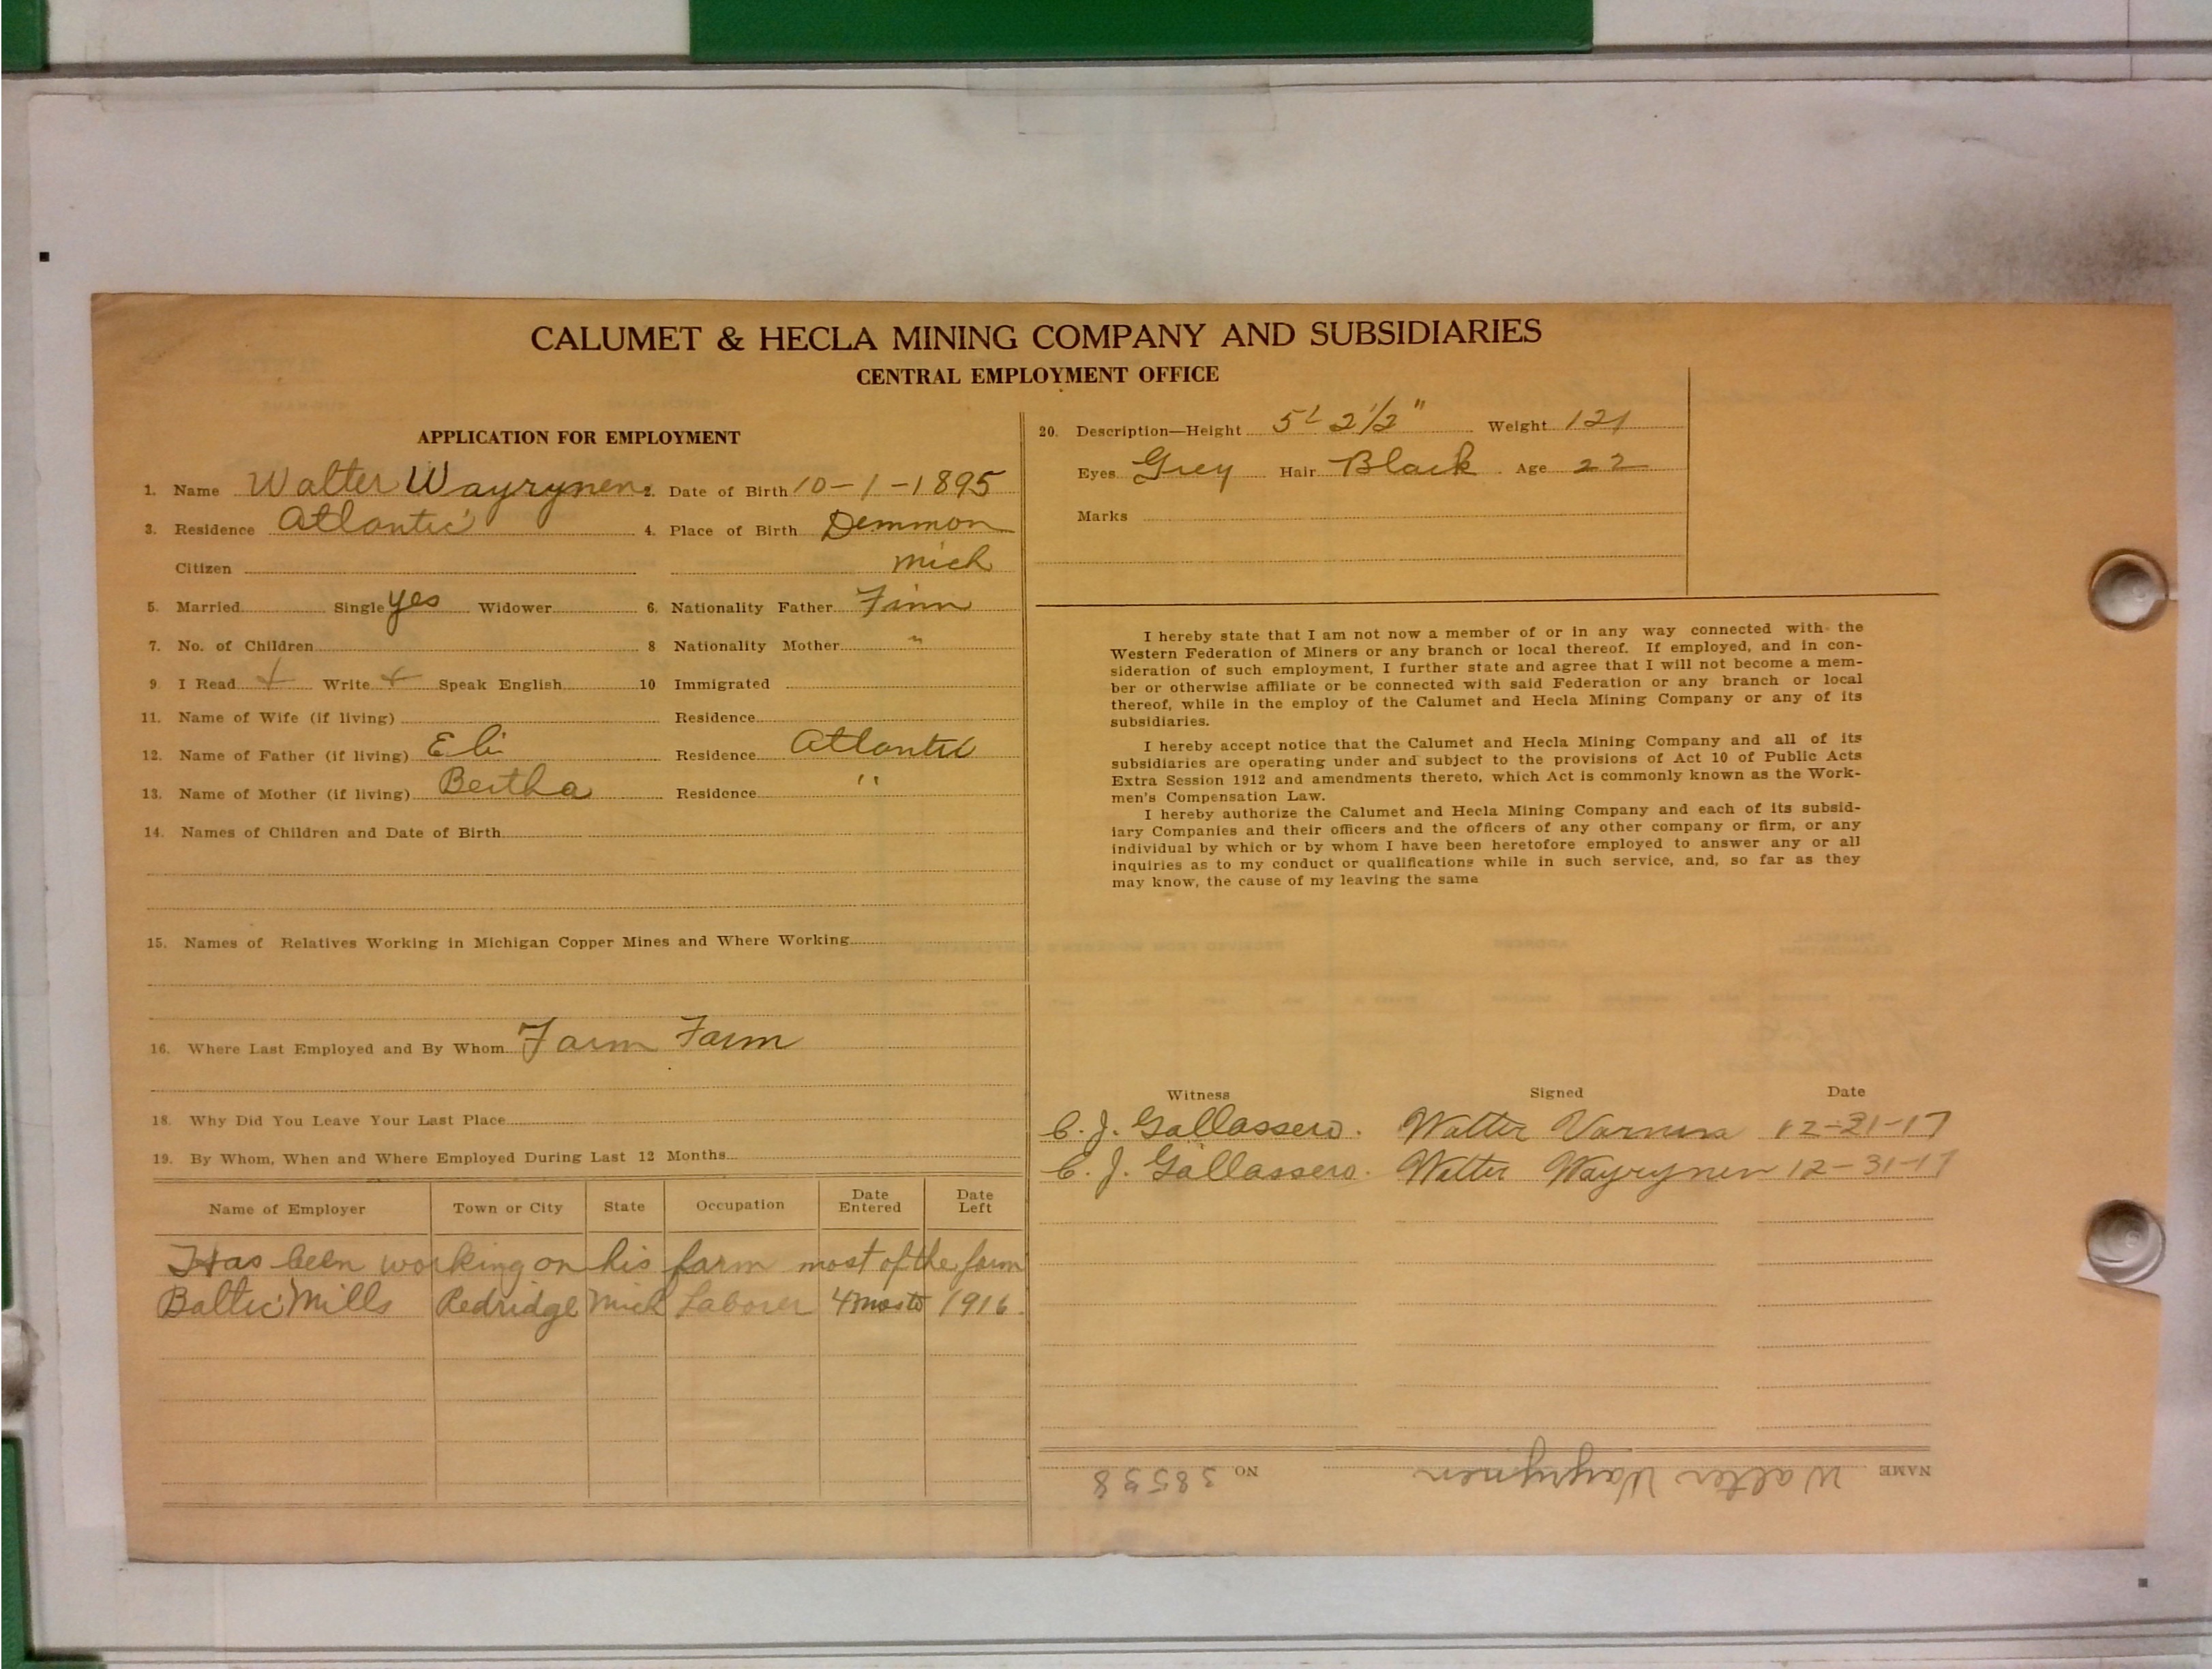 CALUMET & HECLA MINING COMPANY AND SUBSIDIARIES
CENTRAL EMPLOYMENT OFFICE
APPLICATION FOR EMPLOYMENT
1. Name Walter Wayrynen 2. Date of Birth 10-1-1895
3. Residence Atlantic 4. Place of Birth Demmon
Citizen Mich
5. Married Single yes Widower 6. Nationality Father Finn
7. No. of Children 8 Nationality Mother "
9 I Read + Write + Speak English 10 Immigrated
11. Name of Wife (if living) Residence
12. Name of Father (if living) Eli Residence Atlantic
13. Name of Mother (if living) Bertha Residence "
14. Names of Children and Date of Birth
15. Names of Relatives Working in Michigan Copper Mines and Where Working
16. Where Last Employed and By Whom Farm Farm
18. Why Did You Leave Your Last Place
19. By Whom, When and Where Employed During Last 12 Months
Name of Employer Town or City State Occupation Date Entered Date Left
Has been working on his farm most of the farm
Baltic Mills Redridge Mich Laborer 4 mos to 1916.
20. Description—Height 5' 2 1/2" Weight 121
Eyes Grey Hair Black Age 22
Marks
I hereby state that I am not now a member of or in any way connected with the
Western Federation of Miners or any branch or local thereof. If employed, and in con-
sideration of such employment, I further state and agree that I will not become a mem-
ber or otherwise affiliate or be connected with said Federation or any branch or local
thereof, while in the employ of the Calumet and Hecla Mining Company or any of its
subsidiaries.
I hereby accept notice that the Calumet and Hecla Mining Company and all of its
subsidiaries are operating under and subject to the provisions of Act 10 of Public Acts
Extra Session 1912 and amendments thereto, which Act is commonly known as the Work-
men's Compensation Law.
I hereby authorize the Calumet and Hecla Mining Company and each of its subsid-
iary Companies and their officers and the officers of any other company or firm, or any
individual by which or by whom I have been heretofore employed to answer any or all
inquiries as to my conduct or qualifications while in such service, and, so far as they
may know, the cause of my leaving the same
Witness Signed Date
C. J. Gallassero. Walter 12-31-17
C. J. Gallassero. Walter Wayrynen 12-31-17
NAME Walter Wayrynen NO 38538